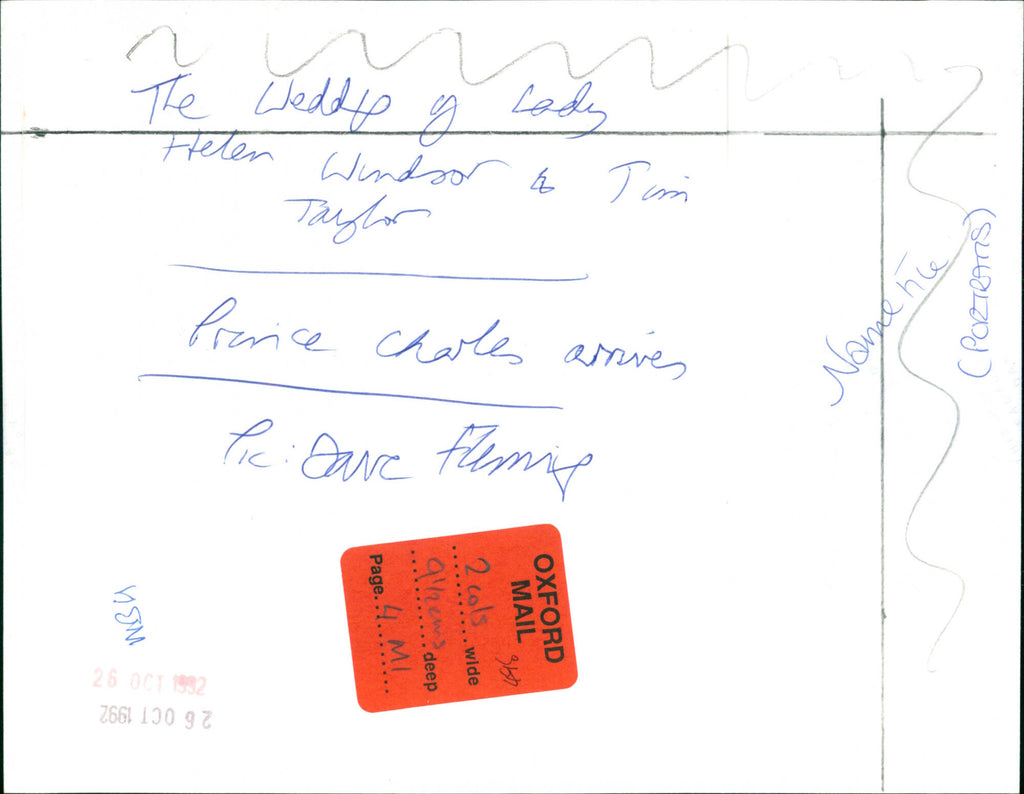 The Wedding of Lady
Helen Windsor & Tim
Taylor
Prince Charles arrives
Pic: Dave Fleming
Name tic
(PORTRAITS)
OXFORD
MAIL
2 cols wide
9 1/2 ems deep
Page 4 M1
26 OCT 1992
26 OCT 1992